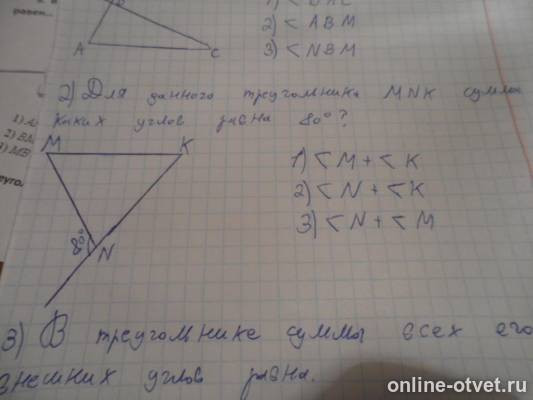 2) < ABM
A
C
3) < NBM
2) Для данного треугольника MNK сумма
каких углов равна 80°?
M
K
1) < M + < K
2) < N + < K
3) < N + < M
80°
N
3) В треугольнике суммы всех его
внешних углов равна.
online-otvet.ru